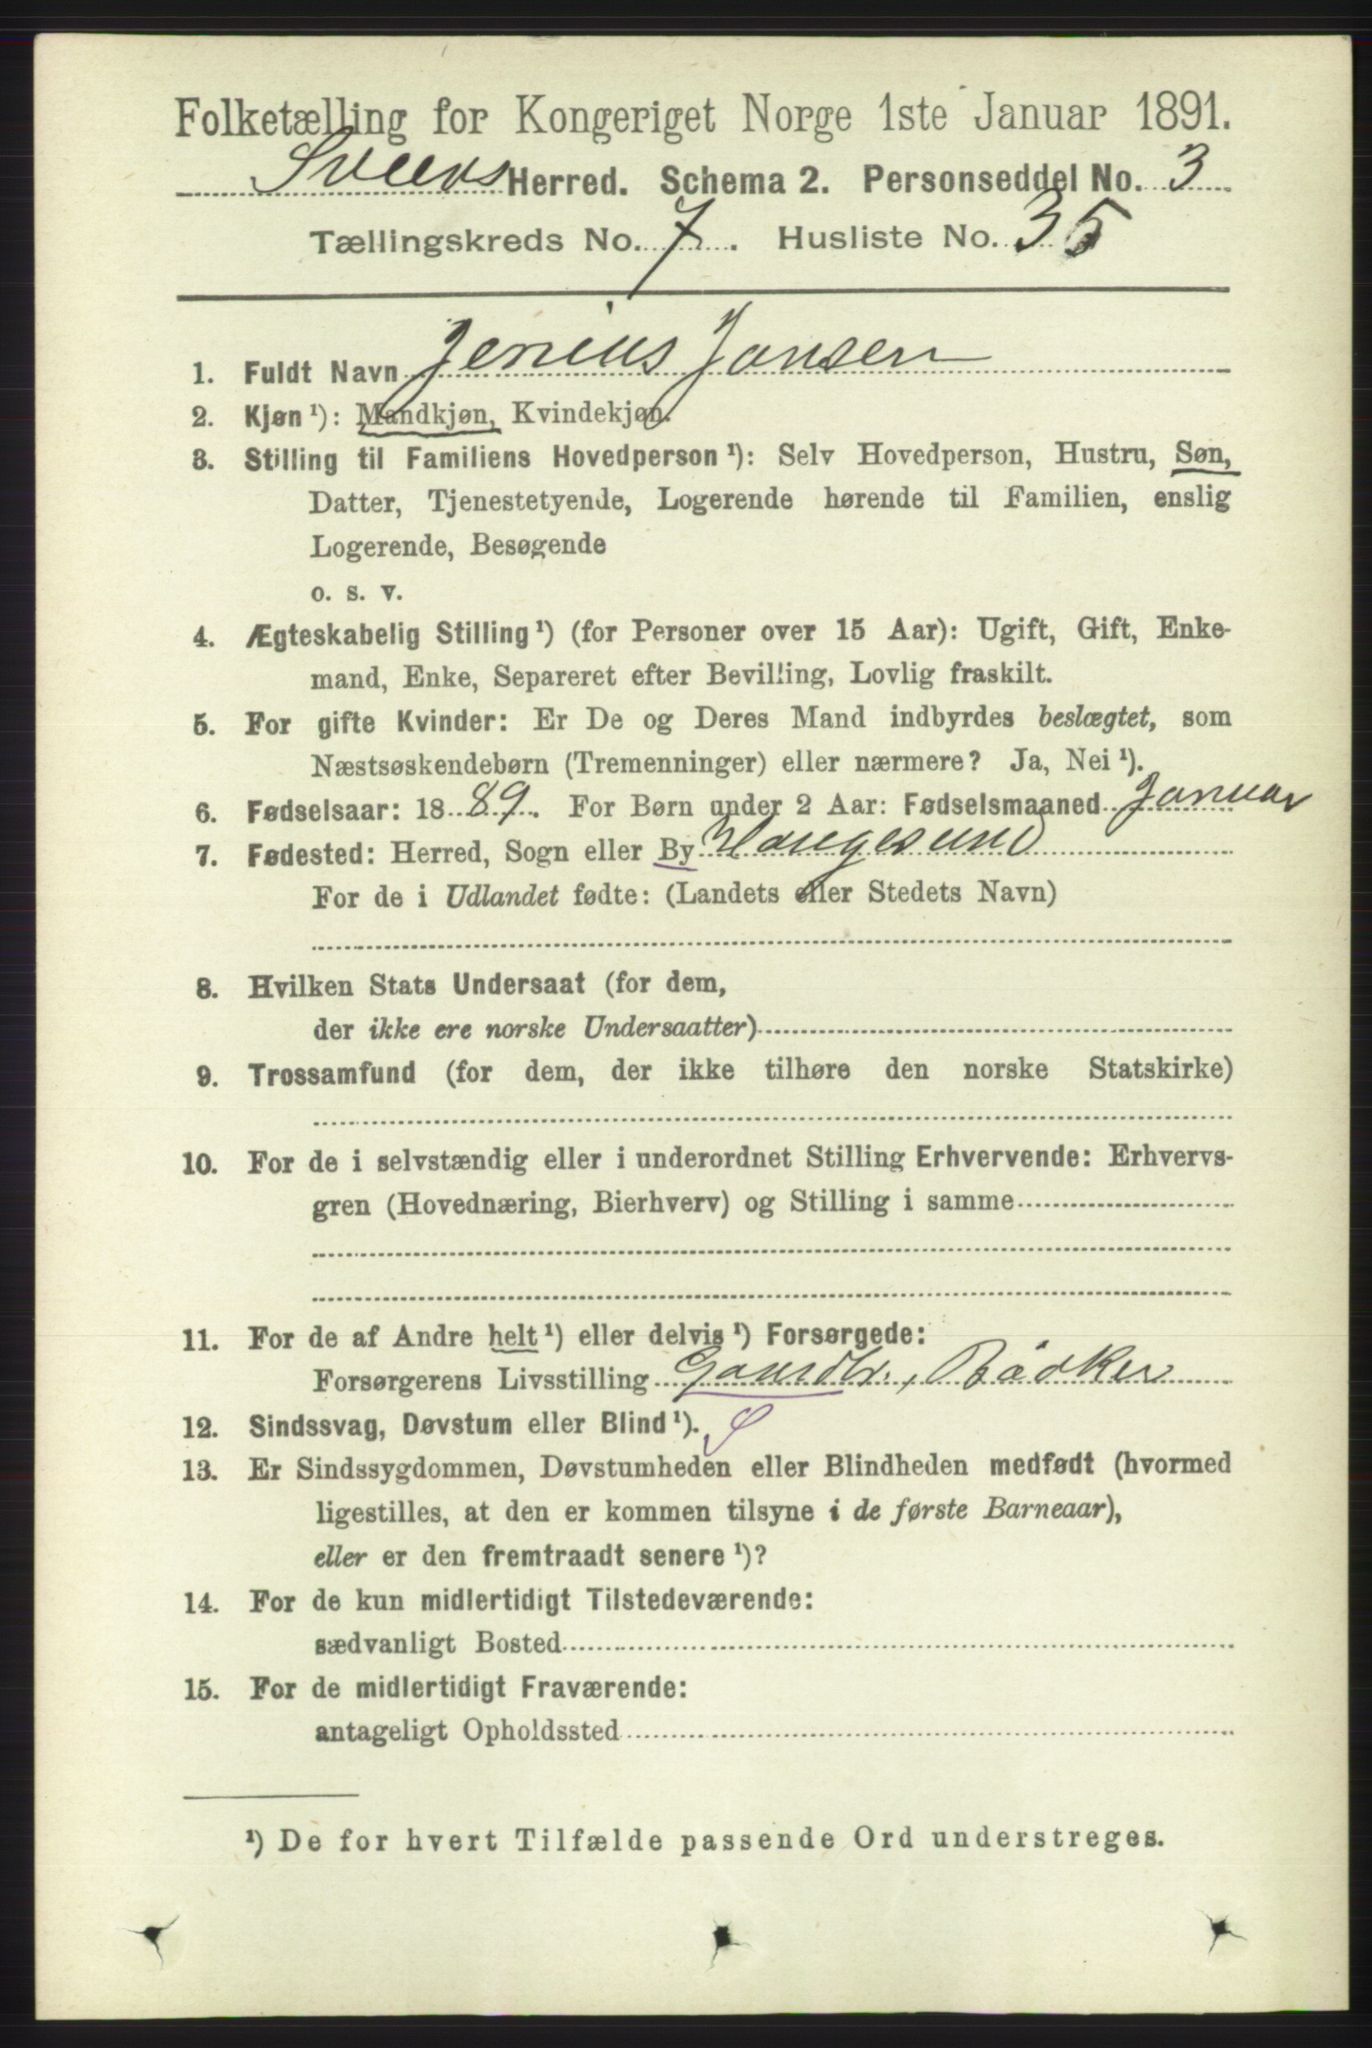 Folketælling for Kongeriget Norge 1ste Januar 1891.
Sveens Herred. Schema 2. Personseddel No. 3
Tællingskreds No. 7. Husliste No. 35
1. Fuldt Navn Jenius Jansen
2. Kjøn ¹): Mandkjøn, Kvindekjøn.
3. Stilling til Familiens Hovedperson ¹): Selv Hovedperson, Hustru, Søn,
Datter, Tjenestetyende, Logerende hørende til Familien, enslig
Logerende, Besøgende
o. s. v.
4. Ægteskabelig Stilling ¹) (for Personer over 15 Aar): Ugift, Gift, Enke-
mand, Enke, Separeret efter Bevilling, Lovlig fraskilt.
5. For gifte Kvinder: Er De og Deres Mand indbyrdes beslægtet, som
Næstsøskendebørn (Tremenninger) eller nærmere? Ja, Nei ¹).
6. Fødselsaar: 1889. For Børn under 2 Aar: Fødselsmaaned Januar
7. Fødested: Herred, Sogn eller By Haugesund
For de i Udlandet fødte: (Landets eller Stedets Navn)
8. Hvilken Stats Undersaat (for dem,
der ikke ere norske Undersaatter)
9. Trossamfund (for dem, der ikke tilhøre den norske Statskirke)
10. For de i selvstændig eller i underordnet Stilling Erhvervende: Erhvervs-
gren (Hovednæring, Bierhverv) og Stilling i samme
11. For de af Andre helt ¹) eller delvis ¹) Forsørgede:
Forsørgerens Livsstilling Gaardbr., Bödker
12. Sindssvag, Døvstum eller Blind ¹).
13. Er Sindssygdommen, Døvstumheden eller Blindheden medfødt (hvormed
ligestilles, at den er kommen tilsyne i de første Barneaar),
eller er den fremtraadt senere ¹)?
14. For de kun midlertidigt Tilstedeværende:
sædvanligt Bosted
15. For de midlertidigt Fraværende:
antageligt Opholdssted
¹) De for hvert Tilfælde passende Ord understreges.